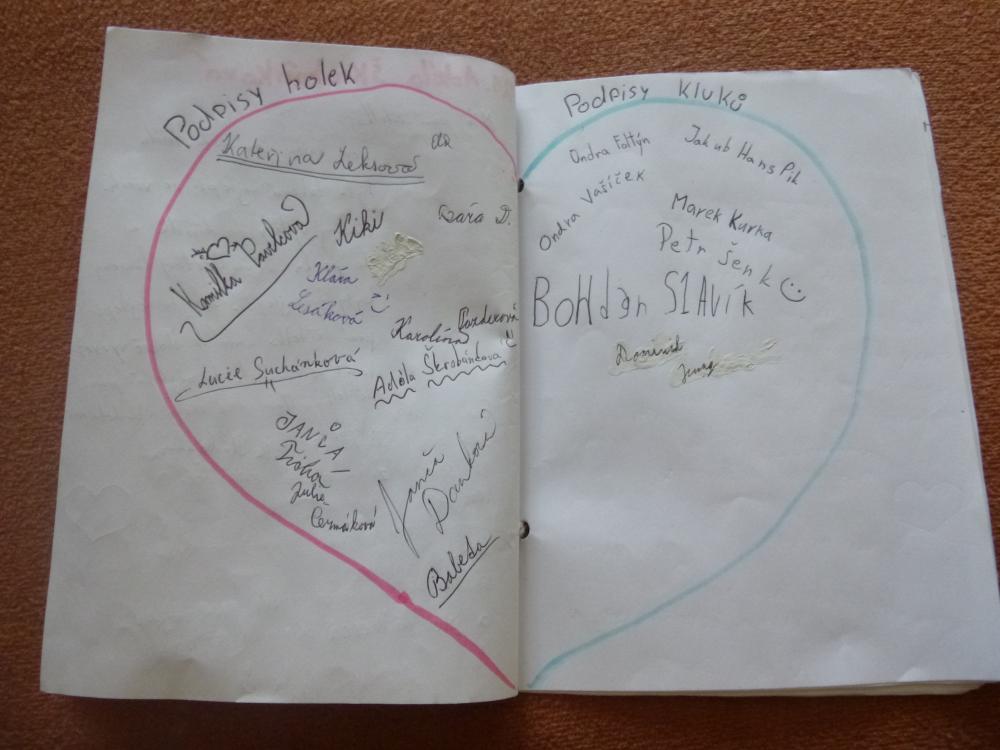 Podpisy holek
Kateřina Leksová
Kamilka Pavelková
Kiki
Bára D.
Klára
Lesáková
Karolína Pazderová
Lucie Suchánková
Adéla Škrobánková
JANČA
Julie
Čermáková
Janča
Danková
Babeta
Podpisy kluků
Ondra Foltýn
Jakub Hans Pik
Ondra Vašíček
Marek Kurka
Petr Šenk
BoHdan SlAvík
Dominik